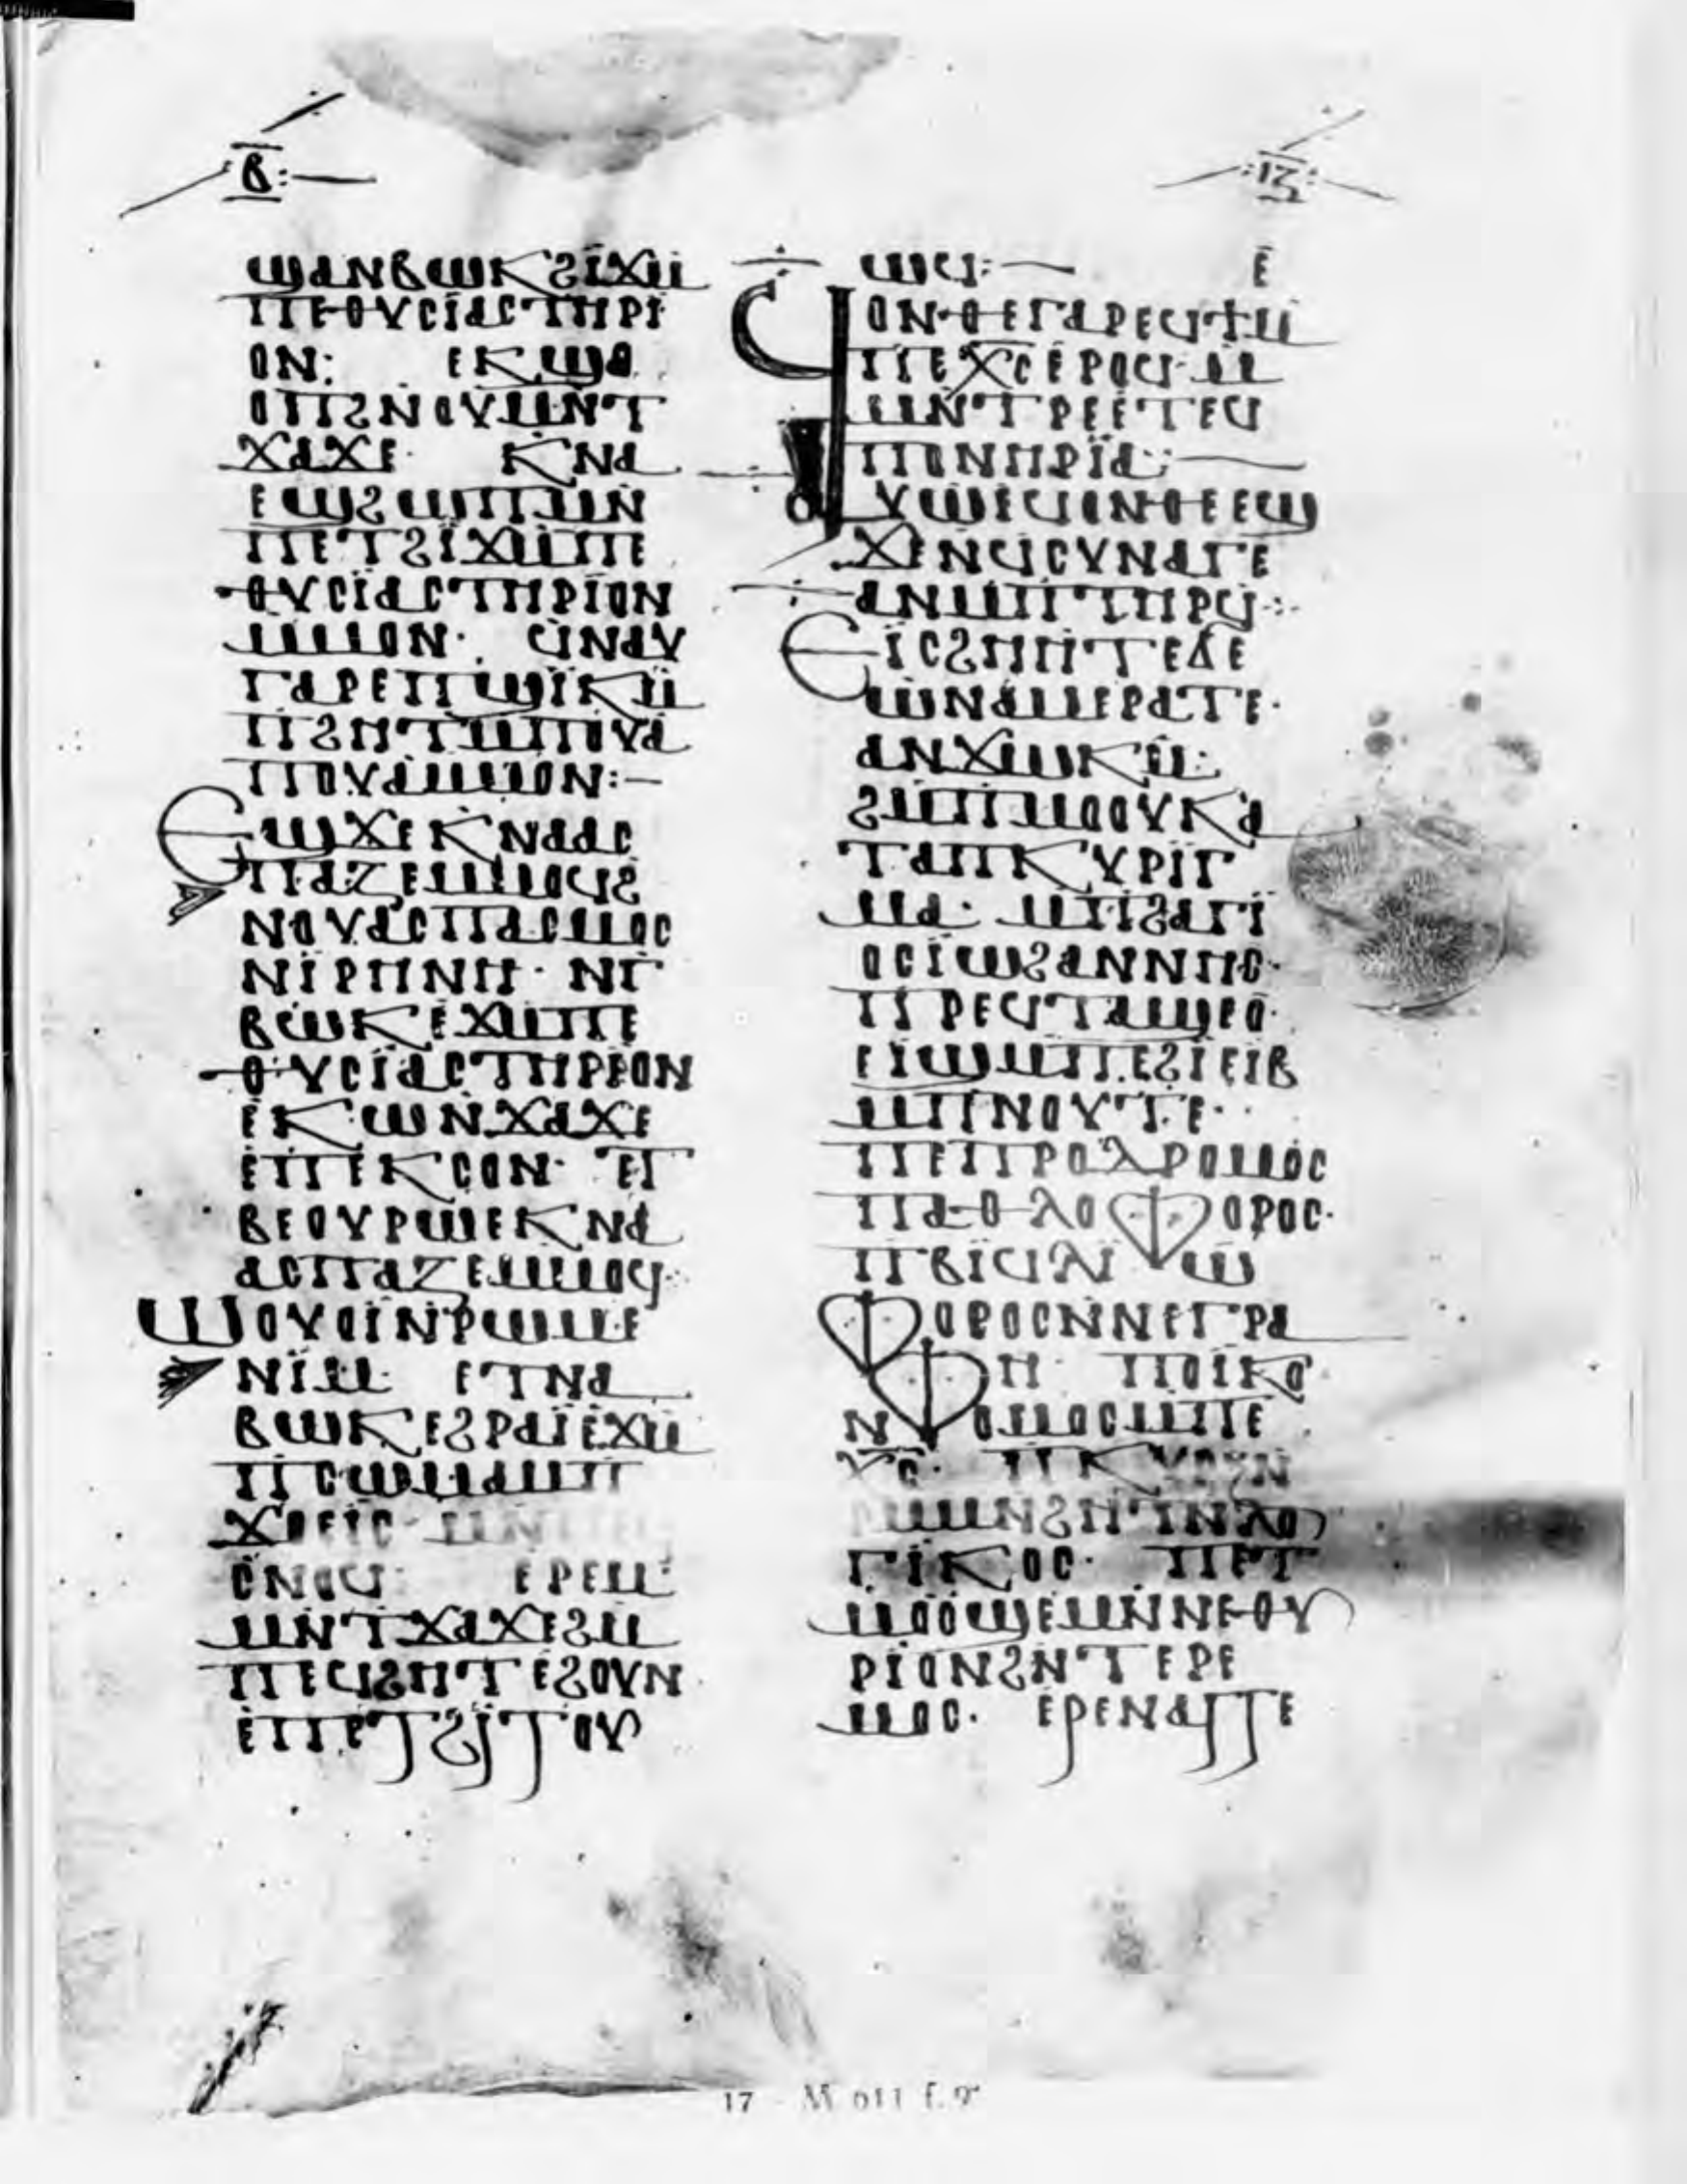 ⲃ̄
ⲓ̄ⲍ̄
ϣⲁⲛⲃⲱⲕϩⲓϫⲙ̄
ⲡⲉⲑⲩⲥⲓⲁⲥⲧⲏⲣⲓ
ⲟⲛ: ⲉⲕϣⲟ
ⲟⲡϩⲛⲟⲩⲙⲛⲧ
ϫⲁϫⲉ· ⲕⲛⲁ
ⲉϣϩⲱⲡⲙⲛ
ⲡⲉⲧϩⲓϫⲙⲡⲉ
ⲑⲩⲥⲓⲁⲥⲧⲏⲣⲓⲟⲛ
ⲙⲙⲟⲛ· ϥⲛⲁⲩ
ⲅⲁⲣⲉⲡϣⲓⲕⲙ̄
ⲡϩⲏⲧⲙⲡⲟⲩⲁ
ⲡⲟⲩⲁⲙⲙⲟⲛ:—
ⲉϣϫⲉⲕⲛⲁⲁⲥ
ⲡⲁⲍⲉⲙⲙⲟϥϩ
ⲛⲟⲩⲁⲥⲡⲁⲥⲙⲟⲥ
ⲛⲓⲣⲏⲛⲏ· ⲛⲅ
ⲃⲱⲕⲉϫⲙⲡⲉ
ⲑⲩⲥⲓⲁⲥⲧⲏⲣⲓⲟⲛ
ⲉⲕⲱⲛϫⲁϫⲉ
ⲉⲡⲉⲕⲥⲟⲛ· ⲉⲓ
ⲃⲉⲟⲩⲣⲱⲉⲕⲛⲁ
ⲁⲥⲡⲁⲍⲉⲙⲙⲟϥ:
ⲱⲟⲩⲟⲓⲛⲣⲱⲙⲉ
ⲛⲓⲙ· ⲉⲧⲛⲁ
ⲃⲱⲕⲉϩⲣⲁⲓⲉϫⲙ̄
ⲡⲥⲱⲙⲁⲙⲡ
ϫⲟⲉⲓⲥ· ⲙⲛⲡⲉϥ
ⲥⲛⲟϥ· ⲉⲣⲉⲙ
ⲙⲛⲧϫⲁϫⲉϩⲙ
ⲡⲉϥϩⲏⲧⲉϩⲟⲩⲛ
ⲉⲡⲉⲧϩⲓⲧⲟⲩ
ⲱϥ:— ⲉ̄
ϥⲟⲛⲑⲉⲅⲁⲣⲉϥϯⲙ̄
ⲡⲉⲭ̄ⲥ̄ⲉⲣⲟϥ· ⲙ
ⲙⲛⲧⲣⲉⲉⲧⲉϥ
ⲡⲟⲛⲏⲣⲓⲁ:—
ⲁⲩⲱⲉϥⲟⲛⲑⲉⲉϣ
ϫⲉⲛϥⲥⲩⲛⲁⲅⲉ
ⲁⲛⲙⲡⲧⲏⲣϥ:
ⲉⲓⲥϩⲏⲏⲧⲉⲇⲉ
ⲱⲛⲁⲙⲉⲣⲁⲧⲉ·
ⲁⲛϫⲱⲕⲙ:
ϩⲙⲡⲙⲟⲟⲩⲕⲁ
ⲧⲁⲡⲕⲩⲣⲓⲅ
ⲙⲁ· ⲙⲡϩⲁⲅⲓ
ⲟⲥⲓⲱϩⲁⲛⲛⲏⲥ·
ⲡⲣⲉϥⲧⲁϣⲉⲟ·
ⲉⲓϣⲙⲡⲉϩⲓⲉⲓⲃ
ⲙⲡⲛⲟⲩⲧⲉ·
ⲡⲉⲡⲣⲟⲇⲣⲟⲙⲟⲥ
ⲡⲁⲑⲗⲟⲫⲟⲣⲟⲥ·
ⲡⲃⲓϥⲁⲓ ϣ
ⲫⲟⲣⲟⲥⲛⲛⲉⲅⲣⲁ
ⲫⲏ· ⲡⲟⲓⲕⲟ
ⲛⲟⲙⲟⲥⲙⲡⲉ
ⲭ̄ⲥ̄· ⲡⲕⲩⲣⲩⲛ
ⲙⲙⲛϩⲏⲧⲛⲗⲟ
ⲅⲓⲕⲟⲥ· ⲡⲉⲧ
ⲙⲟⲟϣⲉⲙⲛⲛⲉⲑⲩ
ⲣⲓⲟⲛϩⲛⲧⲉⲣⲉ
ⲙⲟⲥ· ⲉⲣⲉⲛⲁⲡⲉ
17 - M 611 f. 9ʳ